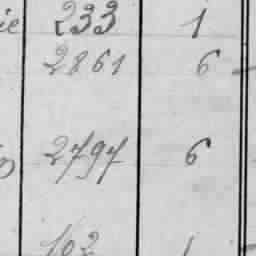 233 1
2861 6
2797 6
102 1